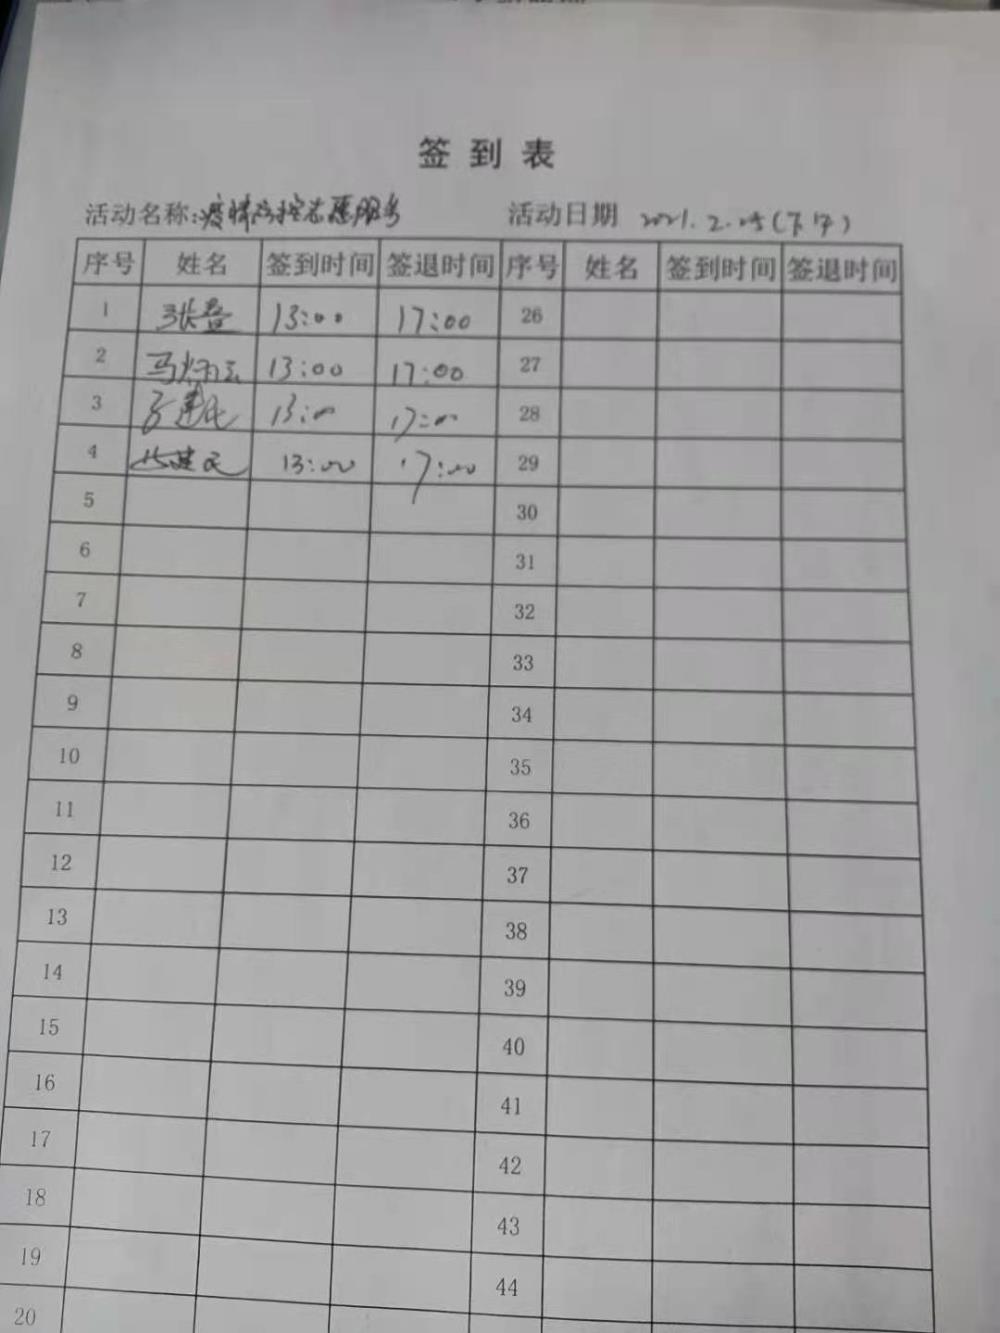 签到表
活动名称:疫情防控志愿服务 活动日期 2021.2.25(下午)
序号 姓名 签到时间 签退时间 序号 姓名 签到时间 签退时间
1 13:00 17:00 26
2 马炳云 13:00 17:00 27
3 建民 13:00 17:00 28
4 建民 13:00 17:00 29
5 30
6 31
7 32
8 33
9 34
10 35
11 36
12 37
13 38
14 39
15 40
16 41
17 42
18 43
19 44
20